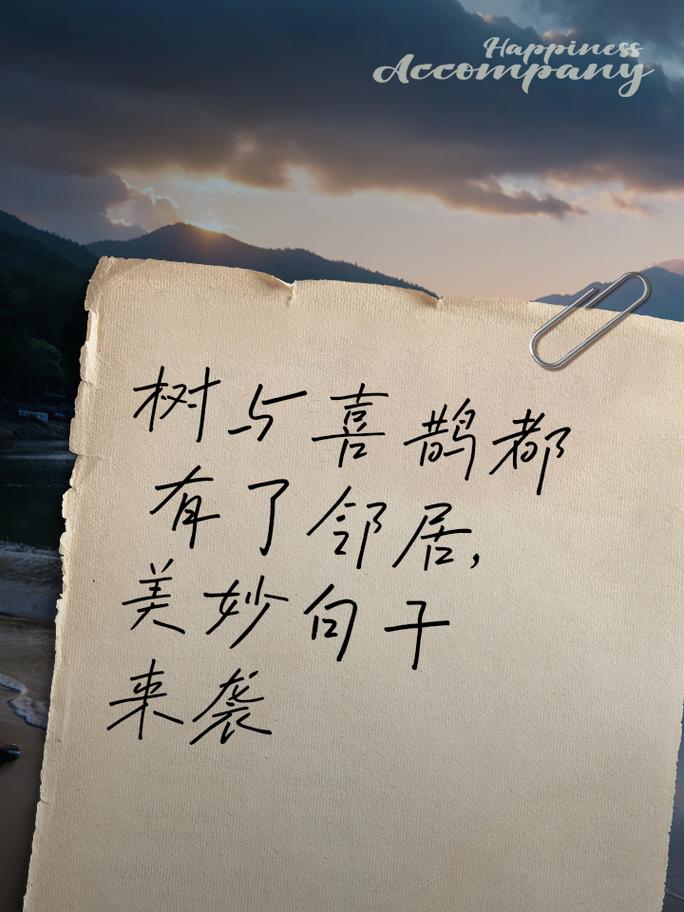 Happiness
Accompany
树与喜鹊都
有了邻居，
美妙句子
来袭